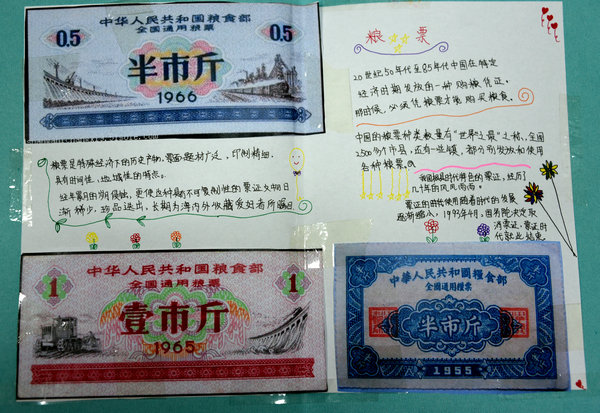 中华人民共和国粮食部
全国通用粮票
0.5
0.5
半市斤
1966
粮票
20世纪50年代至85年代中国在特定
经济时期发放的一种购粮凭证。
那时候，必须凭粮票才能购买粮食。
中国的粮票种类数量有“世界之最”之称，全国
2500多个市县，还有一些镇，都分别发放和使用
各种粮票。
我国极具时代特色的票证，经历了
几十年的风风雨雨。
票证的周转使用随着时代的发展
逐渐缩小，1993年4月，国务院决定取
消票证，票证的
代就此结束
粮票是特殊经济下的历史产物，票面题材广泛，印制精细，
具有时间性、地域性的特点。
经年累月的消除，更使这种具不可复制性的票证久而日
渐稀少，珍品迭出，长期为海内外收藏爱好者所瞩目
中华人民共和国粮食部
全国通用粮票
1
1
壹市斤
1965
中華人民共和国糧食部
全國通用糧票
半市斤
1955